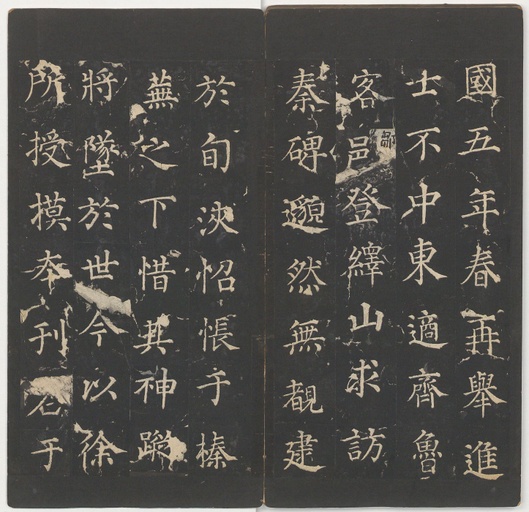 國五年春再舉進
士不中東適齊魯
客鄒邑登繹山求訪
秦碑邈然無覩逮
於旬浹怊悵于榛
蕪之下惜其神蹤
將墜於世今以徐
所授摸本刊石于